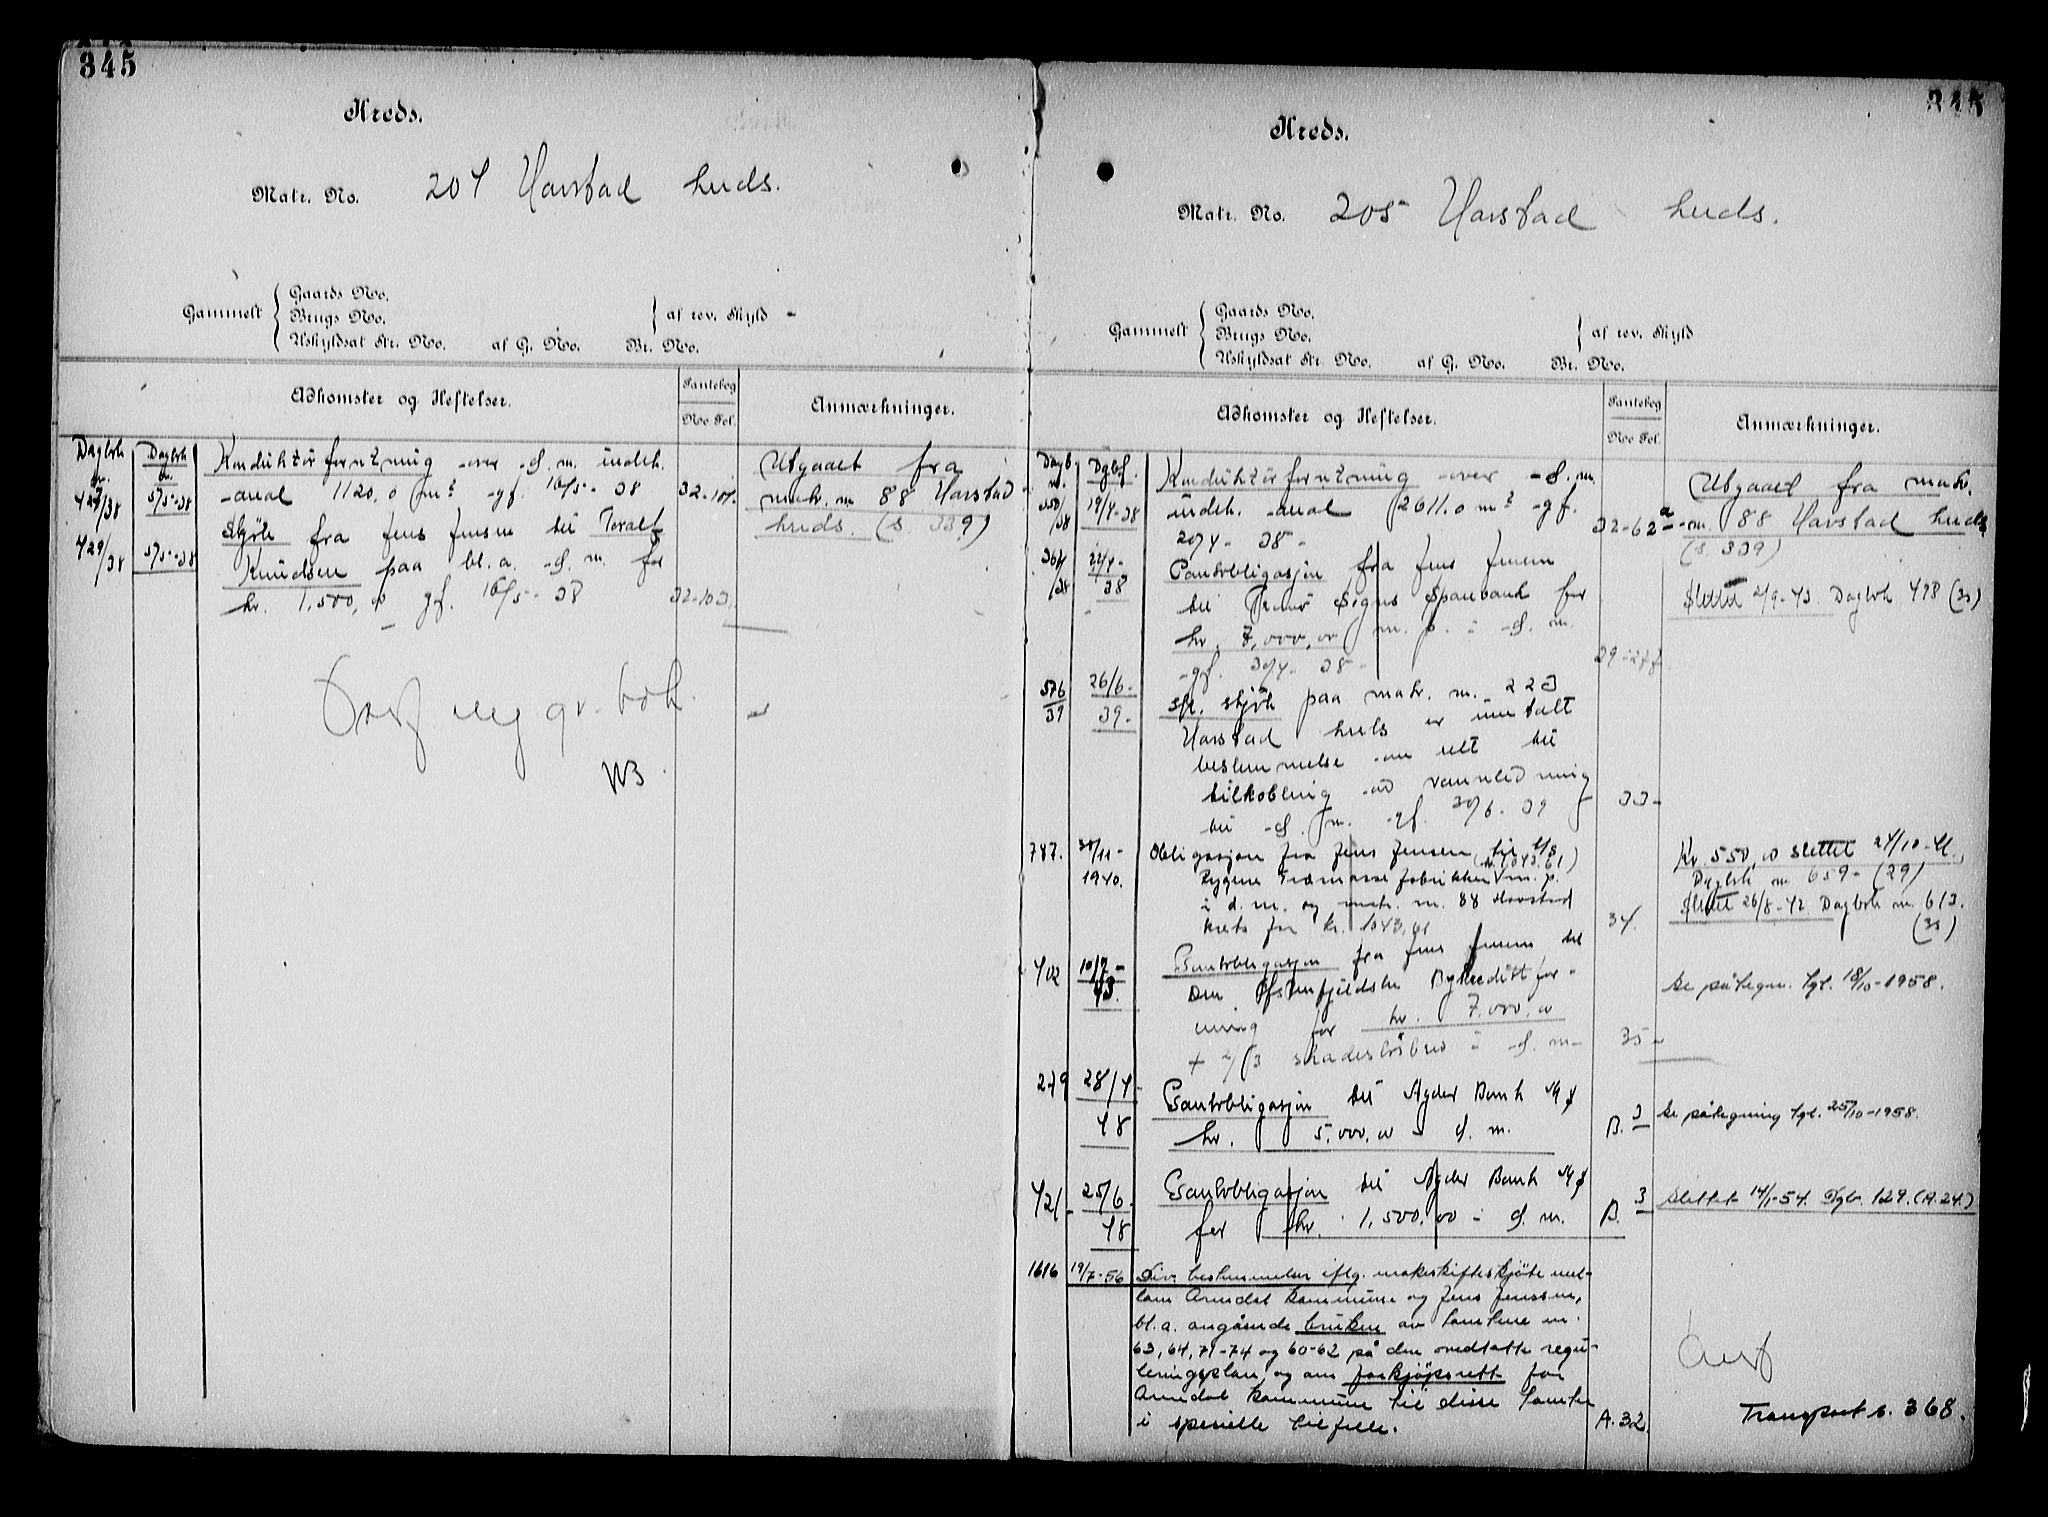 345
Kreds.
Matr. No. 204 Harstad kreds.
Gammelt
Gaards No.
Brugs No.
Uskyldsat Str. No. af G. No. Br. No.
af rev. Skyld -
Adkomster og Heftelser.
Pantebog
No. Fol.
Anmærkninger.
Dagbok nr.
Dagbok
Konduktørforretning over d. m. indeh.
areal 1120,0 m² gf. 16/5-38
Utgaaet fra
matr. nr. 88 Harstad
kreds. (s. 339)
429/38 5/5-38 Skjøte fra Jens Jensen til
Knudsen paa bl. a. d. m. for
kr. 1,500,00 gf. 16/5-38 32-103.
gr. bok.
345
Kreds.
Matr. No. 205 Harstad kreds.
Gammelt
Gaards No.
Brugs No.
Uskyldsat Str. No. af G. No. Br. No.
af rev. Skyld
Adkomster og Heftelser.
Pantebog
No. Fol.
Anmærkninger.
Dagb. nr.
350/38 19/4-38 Konduktørforretning over d. m.
indeh. areal 2611.0 m² gf.
20/4-38 32-62
Utgaaet fra matr.
nr. 88 Harstad kreds
(s. 339)
22/4-38 Pantobligasjon fra Jens Jensen
til Sogns Sparebank for
kr. 7,000,00 m. p. i d. m.
gf. 30/4-38
Slettet 2/9-43 Dagbok 498 (35)
576/39 26/6-39 skjøte paa matr. nr. 223
Harstad kreds er inntatt
bestemmelse om rett til
tilkobling av vannledning
til d. m. gf. 30/6-39 33-
787. 30/11-1940. Obligasjon fra Jens Jensen til A/S
(kr. 1043,61)
Rygene Træmassefabrikker m. p.
i d. m. og matr. nr. 88 Harstad
krets for kr. 1043,61 34.
Kr. 550,00 slettet 24/10-41.
Dagbok nr. 659- (29)
Slettet 26/8-42. Dagbok nr. 613.
402 10/7-43. Pantobligasjon fra Jens Jensen til
Den Vestenfjeldske Bykredittfor-
ening for kr. 7,000.00
+ 2/3 skadesløsbrev i d. m. 35-
Se påtegn. tgl. 18/10-1958.
279 28/4-48 Pantobligasjon til Agder Bank A/S
kr. 5,000,00 i d. m. B. 3
Se påtegning tgl. 25/10-1958.
421 25/6-48 Pantobligasjon til Agder Bank A/S
for kr. 1,500,00 i d. m. B. 3
Slettet 14/1-54. Dgb. 129. (A.24.)
1616 19/7-56 Div. bestemmelser iflg. makeskifteskjøte mel-
lom Arendal kommune og Jens Jenssen,
bl.a. angående bruken av tomtene nr.
63, 64, 71-74 og 60-62 på den vedtatte regu-
leringsplan, og om forkjøpsrett for
Arendal kommune til disse tomter
i spesielle tilfelle. A.32.
Transport s. 368.